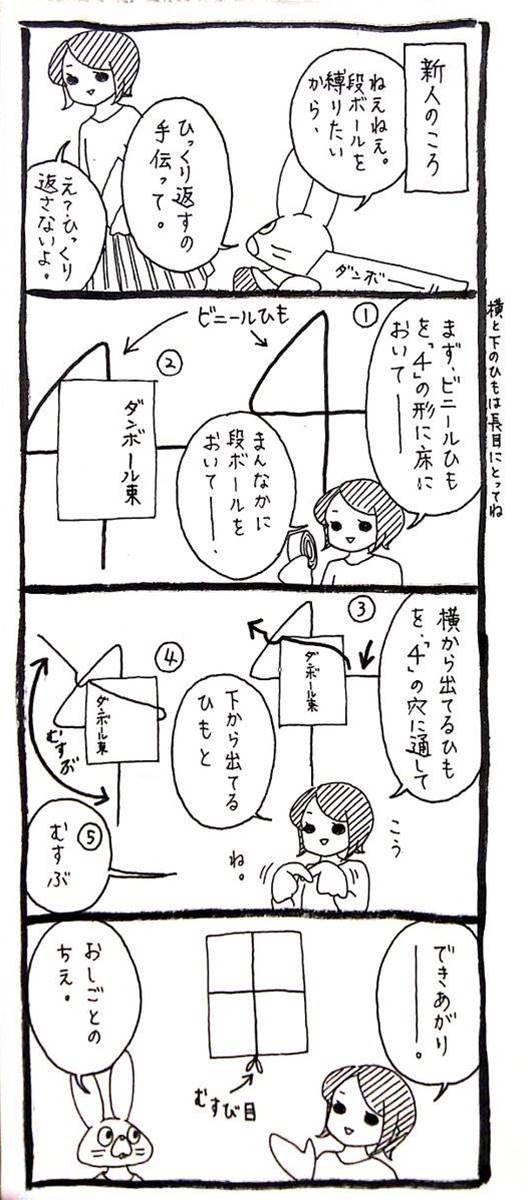 新人のころ
ねえねえ。
段ボールを
縛りたい
から、
ひっくり返すの
手伝って。
え？ひっくり
返さないよ。
ダンボ
横と下のひもは長目にとってね
①
まず、ビニールひも
を、「4」の形に床に
おいて――
ビニールひも
②
ダンボール束
まんなかに
段ボールを
おいて――、
③
横から出てるひも
を、「4」の穴に通して
ダンボール束
こう
ね。
④
下から出てる
ひもと
ダンボール束
むすぶ
⑤
むすぶ
できあがり
――。
むすび目
おしごとの
ちえ。